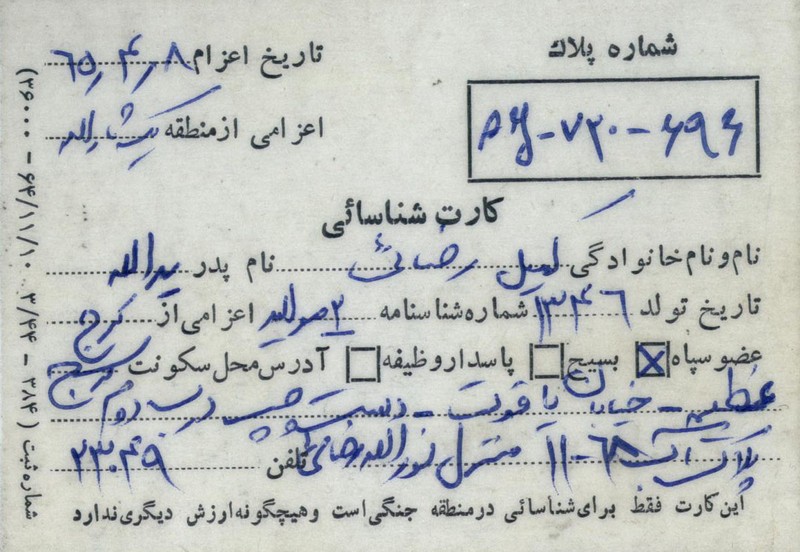 شماره پلاک
تاریخ اعزام ۶۵٫۴٫۸
اعزامی از منطقه
۶۹۶ - ۷۲۰ -
کارت شناسائی
نام و نام خانوادگی رضائی نام پدر یدالله
تاریخ تولد ۱۳۴۶ شماره شناسنامه ۳ اعزامی از کرج
عضو سپاه بسیج پاسدار وظیفه آدرس محل سکونت کرج
عظیمیه - خیابان یاقوت - دست چپ درب دوم
پلاک ۶۸-۱۱ منزل نورالله رضائی تلفن ۲۳۰۴۹
این کارت فقط برای شناسائی در منطقه جنگی است و هیچگونه ارزش دیگری ندارد
شماره ثبت ( ۳۸۴ - ۳/۴۴ ۶۴/۱۱/۱۰ - ۳۶۰۰۰)